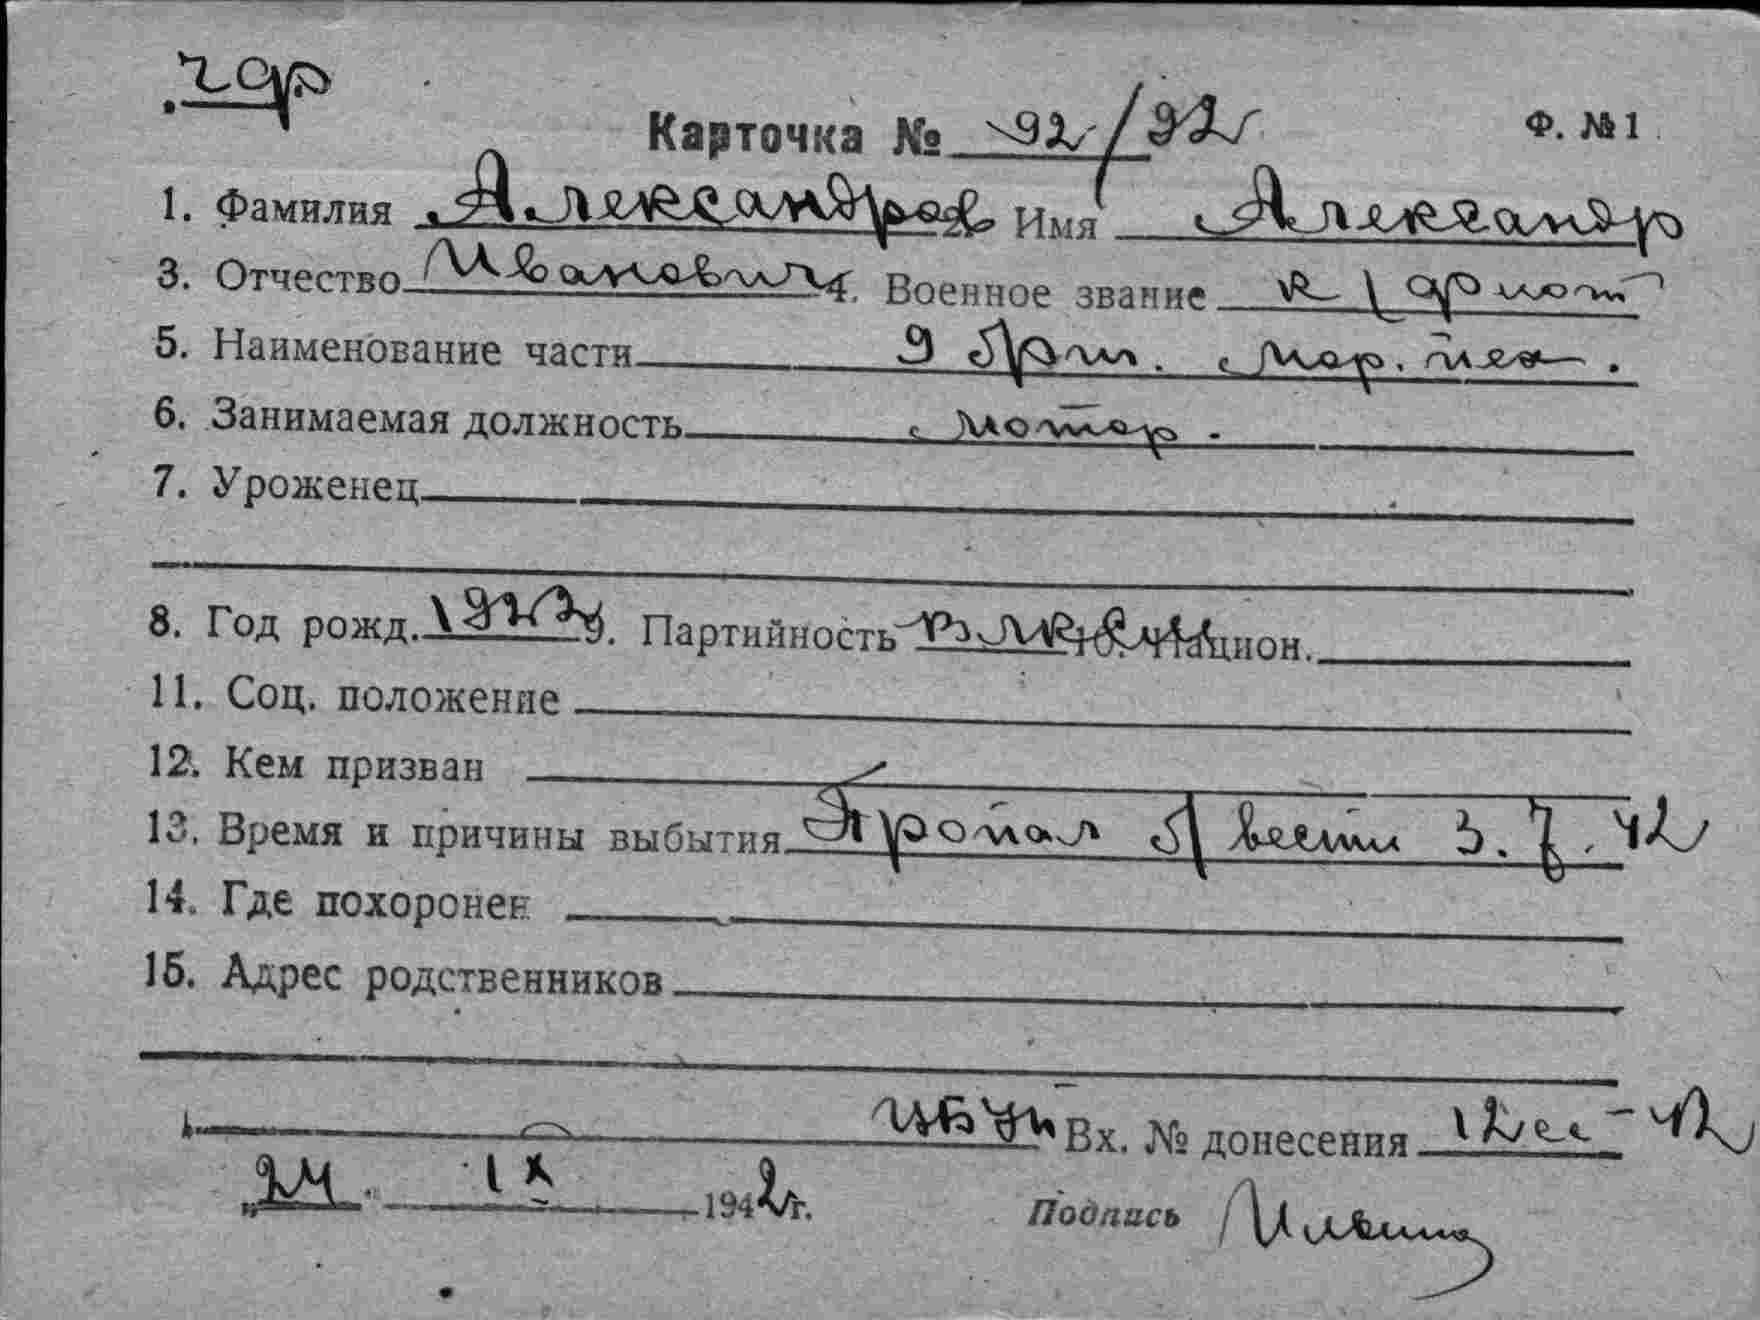 Карточка № 92/92 Ф. №1
1. Фамилия Александров Имя Александр
3. Отчество Иванович. Военное звание к/флот
5. Наименование части 9 Арт. мор.
6. Занимаемая должность мотор.
7. Уроженец
8. Год рожд. Партийность Национ.
11. Соц. положение
12. Кем призван
13. Время и причины выбытия Пропал вести 3.7.42
14. Где похоронен
15. Адрес родственников
Вх. № донесения
„24. IX 1942г. Подпись